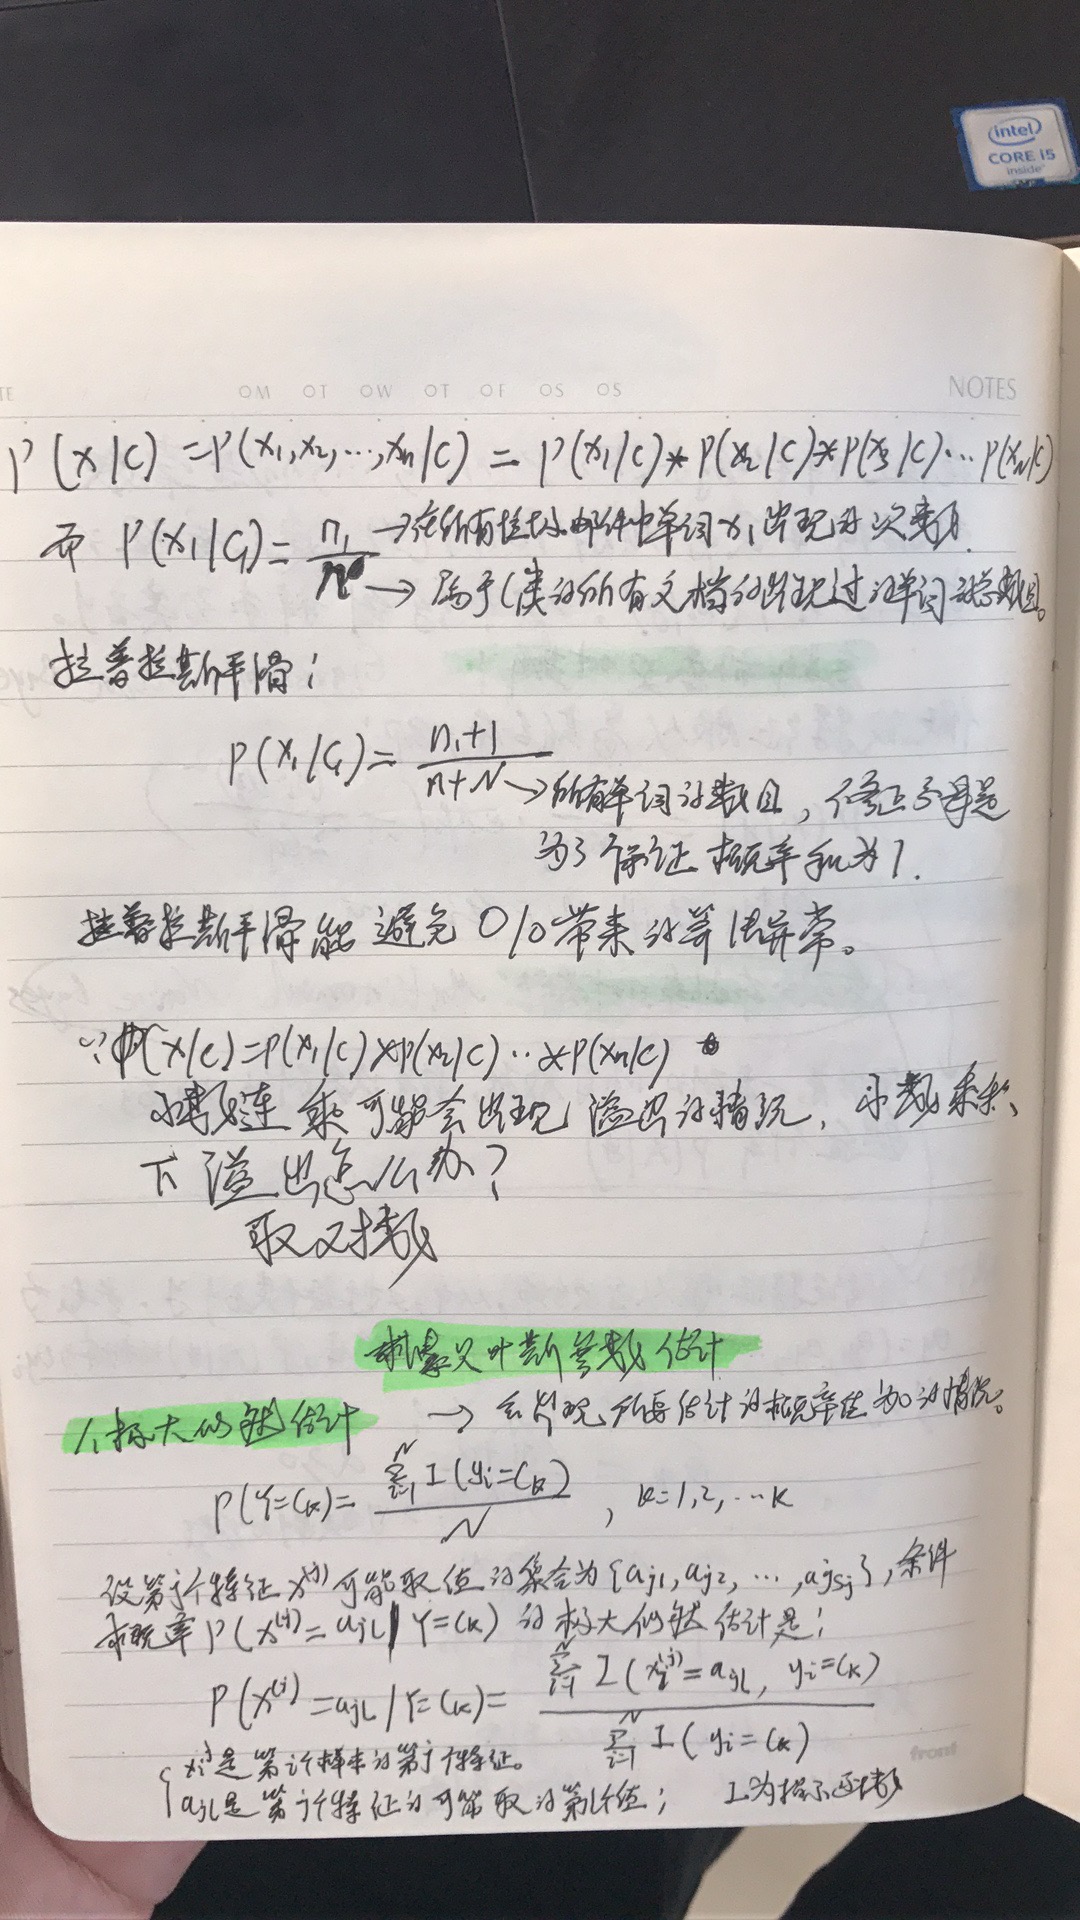 intel
CORE i5
inside
NOTES
P(x|c) = P(x₁,x₂,…,xₙ|c) = P(x₁|c)*P(x₂|c)*P(x₃|c)…P(xₙ|c)
而 P(x₁|C₁)= n₁/n →在所有垃圾邮件中单词x₁出现的次数.
→ 属于C类的所有文档的出现过的单词总数目。
拉普拉斯平滑:
P(x₁|C₁)= (n₁+1)/(n+N) →所有单词的数目, 修正分母是
为了保证概率和为1.
拉普拉斯平滑能避免0/0带来的算法异常。
∵P(x|c)=P(x₁|c)*P(x₂|c)…*P(xₙ|c)
小数连乘可能会出现溢出的情况, 小数乘积
下溢出怎么办?
取对数
朴素贝叶斯参数估计
1、极大似然估计 → 会出现所要估计的概率值为0的情况。
P(Y=Cₖ)= Σᵢ₌₁ᴺ I(yᵢ=Cₖ)/N , k=1,2,…K
设第j个特征x⁽ʲ⁾可能取值的集合为{aj₁,aj₂,…,ajsⱼ},条件
概率P(x⁽ʲ⁾=ajl|Y=Cₖ)的极大似然估计是:
P(x⁽ʲ⁾=ajl|Y=Cₖ)= Σᵢ₌₁ᴺ I(xᵢ⁽ʲ⁾=ajl, yᵢ=Cₖ) / Σᵢ₌₁ᴺ I(yᵢ=Cₖ)
front
{xᵢʲ是第i个样本的第j个特征。
ajl是第j个特征的可能取的第l个值; I为指示函数